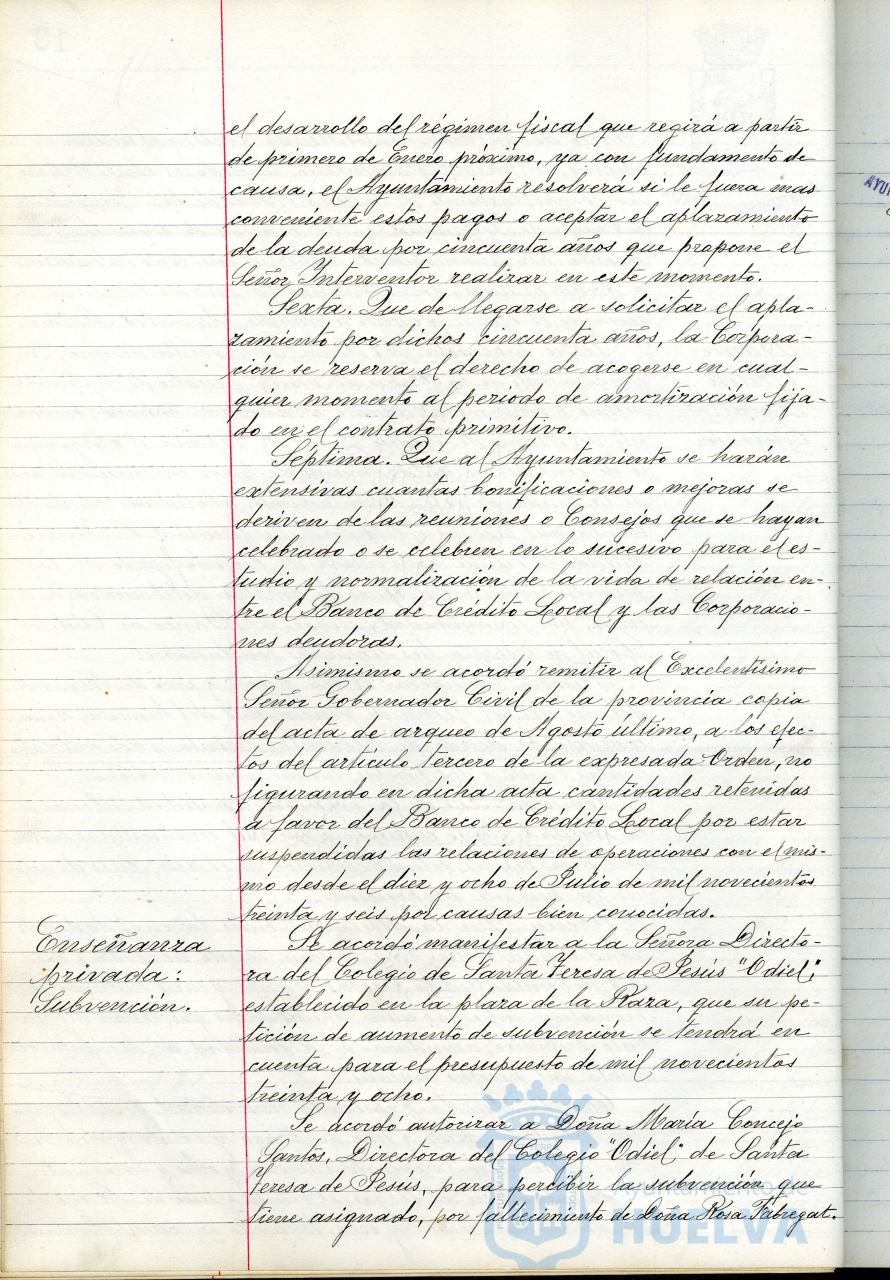 el desarrollo del régimen fiscal que regirá a partir
de primero de Enero próximo, ya con fundamento de
causa, el Ayuntamiento resolverá si le fuera mas
conveniente estos pagos o aceptar el aplazamiento
de la deuda por cincuenta años que propone el
Señor Interventor realizar en este momento.
Sexta. Que de llegarse a solicitar el apla-
zamiento por dichos cincuenta años, la Corpora-
ción se reserva el derecho de acogerse en cual-
quier momento al periodo de amortización fija-
do en el contrato primitivo.
Séptima. Que al Ayuntamiento se harán
extensivas cuantas bonificaciones o mejoras se
deriven de las reuniones o Consejos que se hayan
celebrado o se celebren en lo sucesivo para el es-
tudio y normalización de la vida de relación en-
tre el Banco de Crédito Local y las Corporacio-
nes deudoras.
Asimismo se acordó remitir al Excelentísimo
Señor Gobernador Civil de la provincia copia
del acta de arqueo de Agosto último, a los efec-
tos del artículo tercero de la expresada Orden, no
figurando en dicha acta cantidades retenidas
a favor del Banco de Crédito Local por estar
suspendidas las relaciones de operaciones con el mis-
mo desde el diez y ocho de Julio de mil novecientos
treinta y seis por causas bien conocidas.
Enseñanza
privada:
Subvención.
Se acordó manifestar a la Señora Directo-
ra del Colegio de Santa Teresa de Jesús "Odiel",
establecido en la plaza de la Raza, que su pe-
tición de aumento de subvención se tendrá en
cuenta para el presupuesto de mil novecientos
treinta y ocho.
Se acordó autorizar a Doña María Concejo
Santos, Directora del Colegio "Odiel" de Santa
Teresa de Jesús, para percibir la subvención que
tiene asignado, por fallecimiento de Doña Rosa Fabregat.
Ayuntamiento de
HUELVA